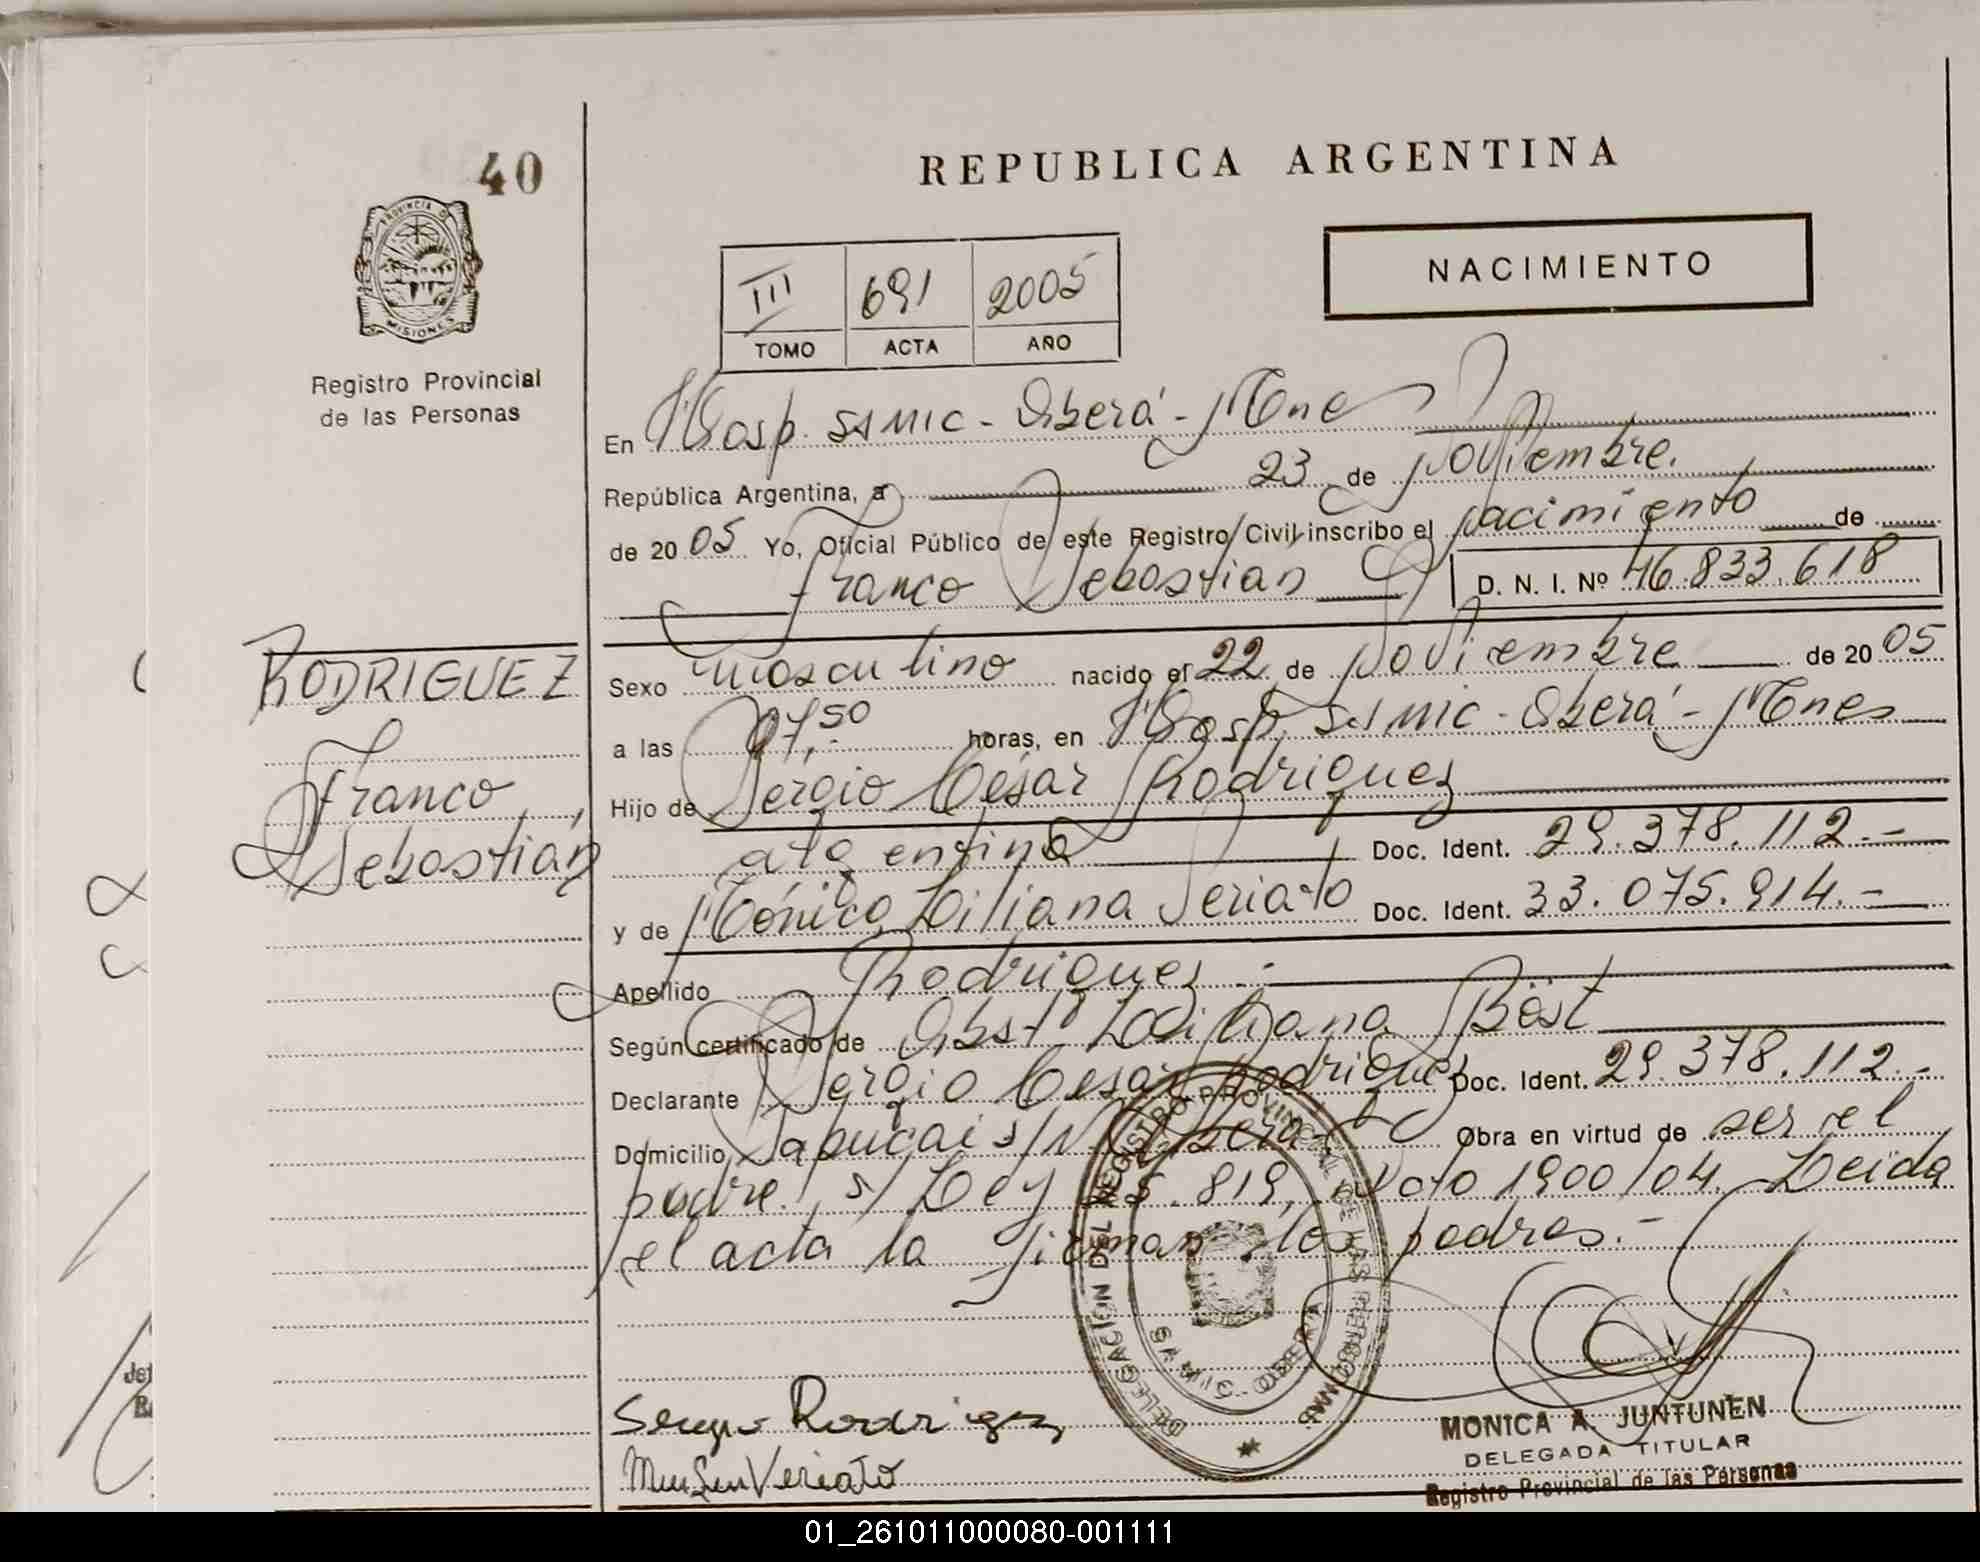 40
PROVINCIA DE
MISIONES
Registro Provincial
de las Personas
REPUBLICA ARGENTINA
NACIMIENTO
III 691 2005
TOMO ACTA AÑO
En Hosp. SAMIC - Oberá - Mnes
República Argentina, a 23 de Noviembre.
de 20 05 Yo, Oficial Público de este Registro Civil inscribo el nacimiento de
Franco Sebastián D. N. I. Nº 46.833.618
RODRIGUEZ
Franco
Sebastián
Sexo masculino nacido el 22 de Noviembre de 20 05
a las 07,50 horas, en Hosp. SAMIC - Oberá - Mnes
Hijo de Sergio César Rodriguez
argentina Doc. Ident. 29.378.112.-
y de Mónica Liliana Veriato Doc. Ident. 33.075.914.-
Apellido Rodriguez.-
Según certificado de Obst. Liliana Böst
Declarante Sergio Cesar Rodriguez Doc. Ident. 29.378.112.-
Domicilio Sapucai s/Nº Oberá Obra en virtud de ser el
padre. s/ Ley 5.819, Dcto 1900/04. Leida
el acta la firman los padres.-
DELEGACION DEL REGISTRO PROVINCIAL DE LAS PERSONAS
SAMIC OBERA
Sergio Rodriguez
Veriato
MONICA A. JUNTUNEN
DELEGADA TITULAR
Registro Provincial de las Personas
01_261011000080-001111